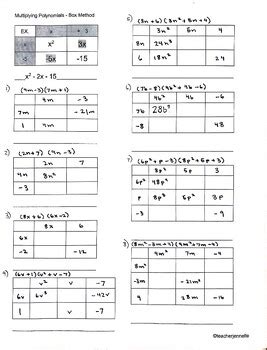 Multiplying Polynomials - Box Method
EX. x + 3
x x² 3x
-5x -15
x² - 2x - 15
1) (4m-3)(7m+1)
4m -3
7m -21m
1
2) (2n+7)(4n-3)
2n 7
4n 8n²
-3
3) (8x+6)(6x-2)
8x 6
6x
-2 -12
4) (6v+1)(v²+v-7)
v² v -7
6v 6v³ -42v
1 -7
5) (8n+6)(3n²+5n+4)
3n² 5n 4
8n 24n³
6 18n² 24
6) (7b-8)(4b²+4b-6)
4b² 4b -6
7b 28b³
-8 48
7) (6p²+p-3)(8p²+5p+3)
8p² 5p 3
6p² 48p⁴
p 3p
-3 -9
8) (8m²-3m+4)(4m²+7m-4)
4m² 7m -4
8m²
-3m -21m²
4 28m -16
©teacherjennelfe